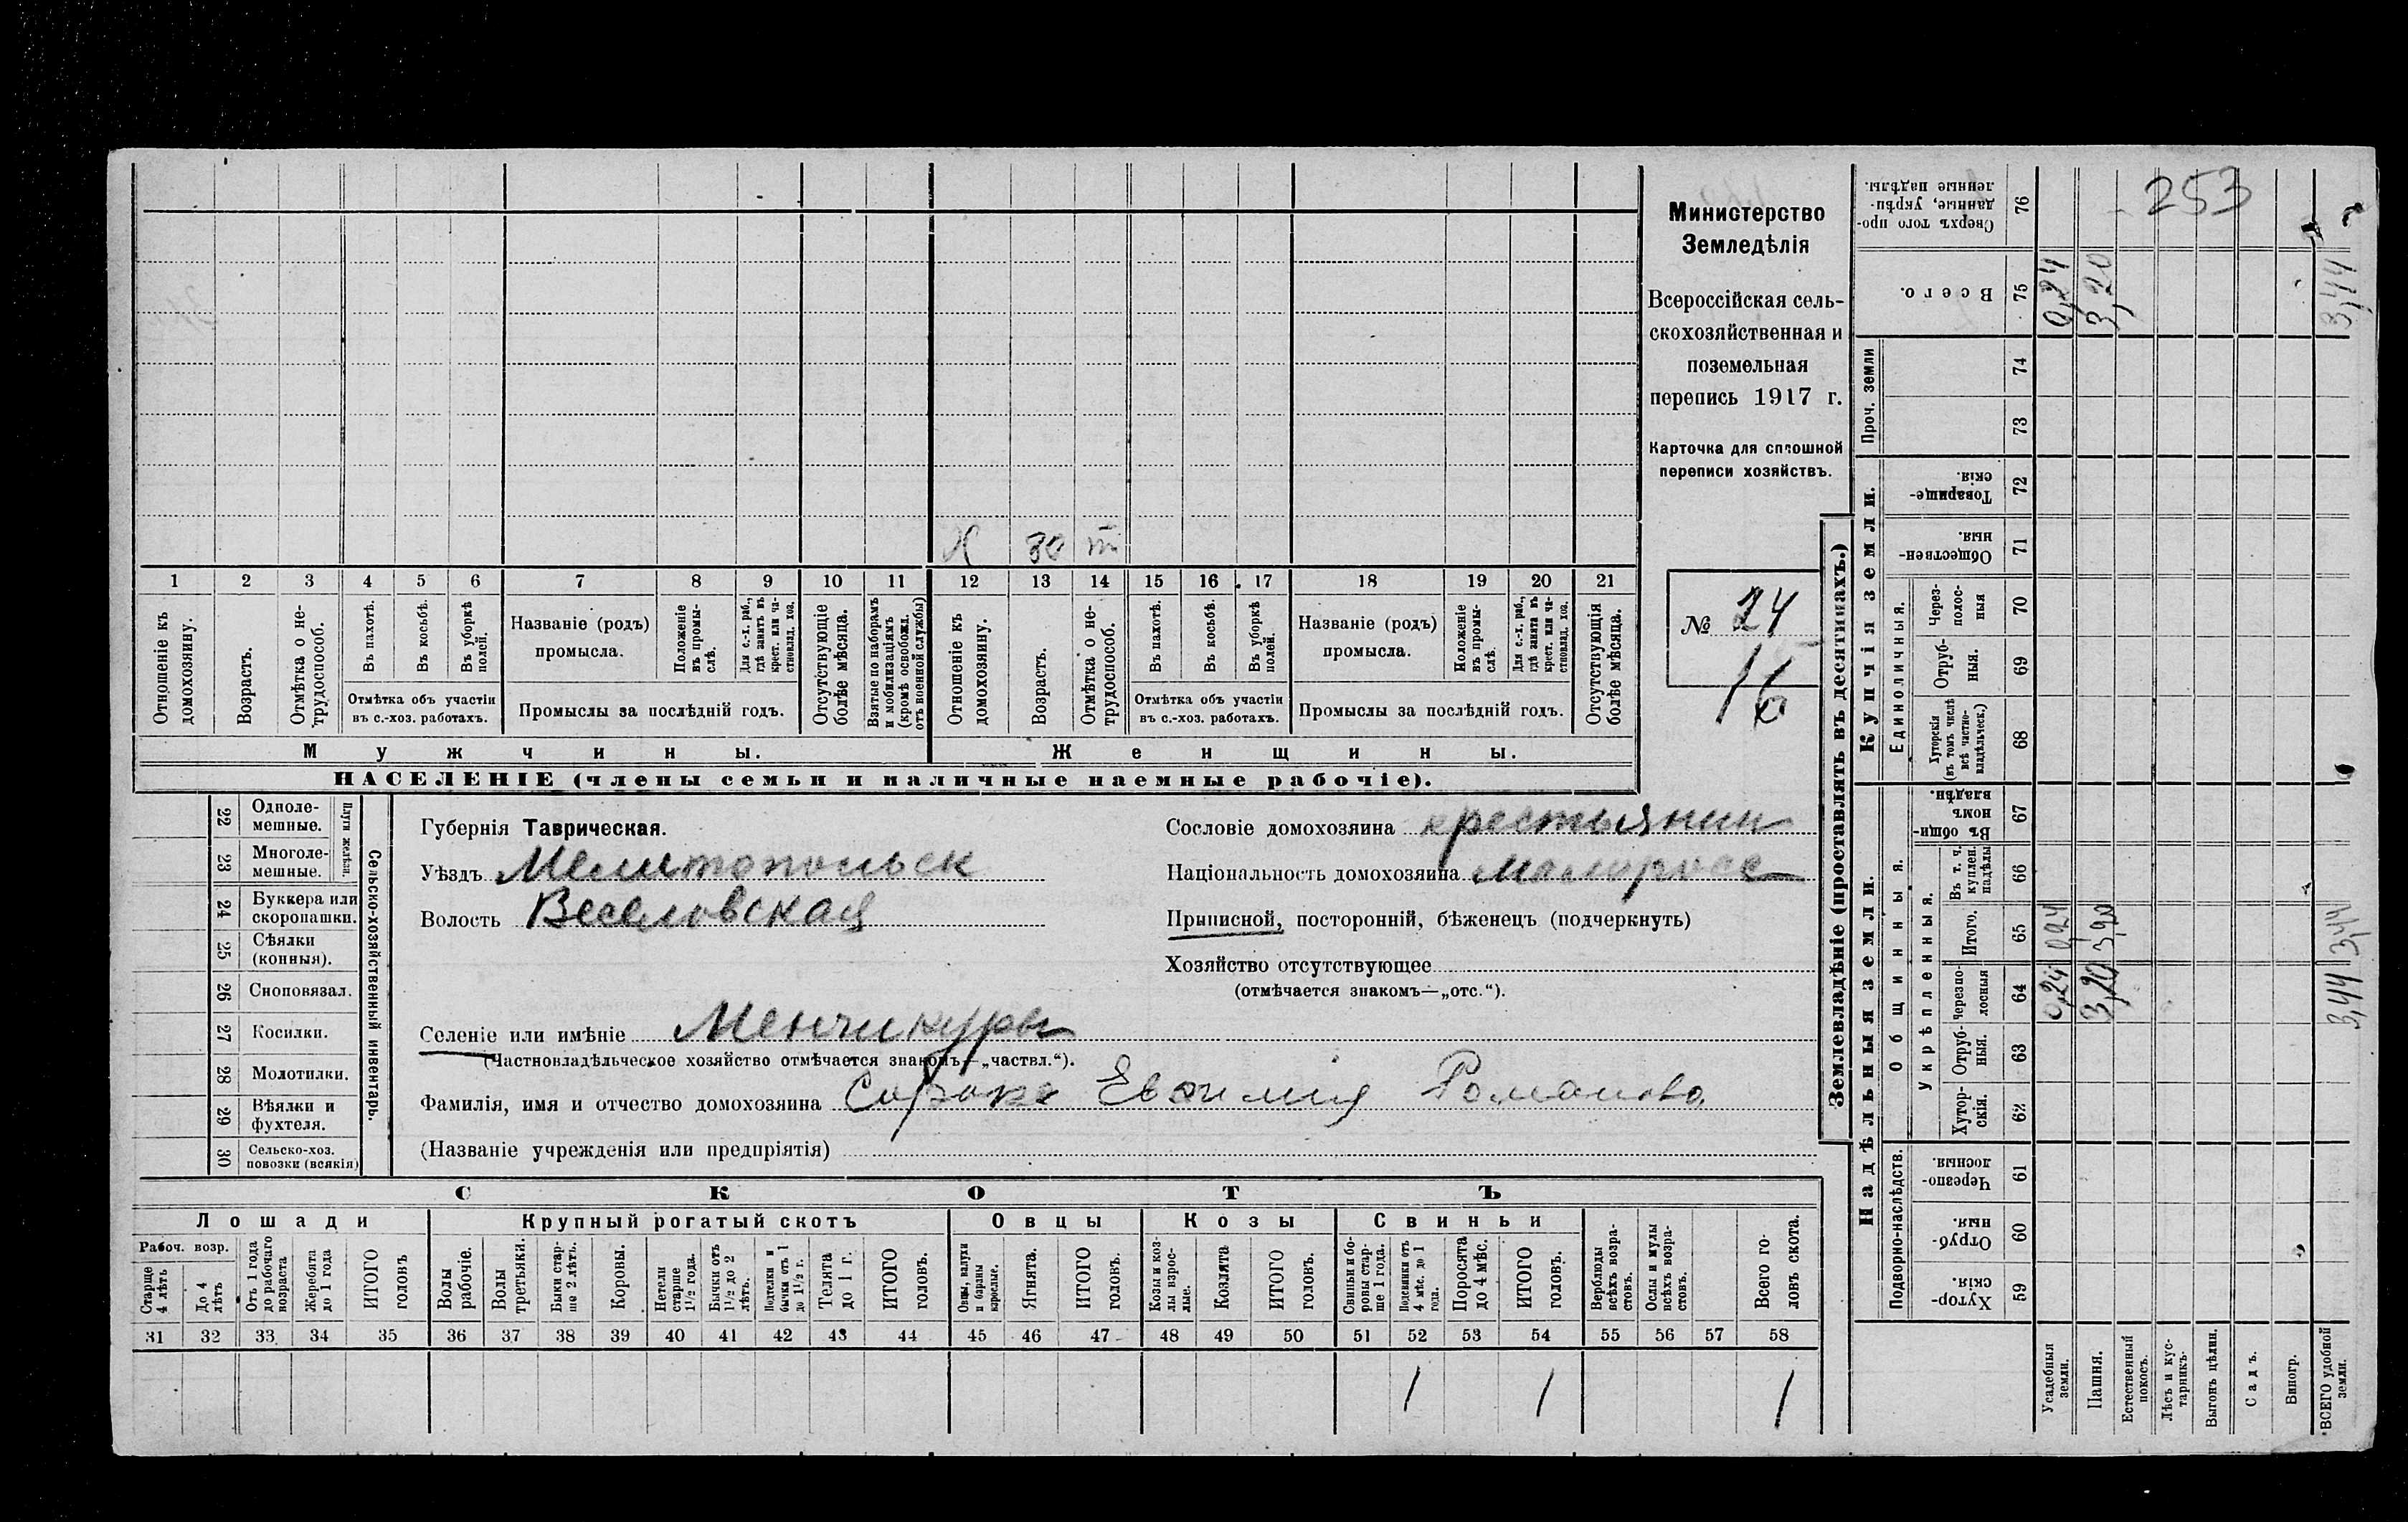 1 2 3 4 5 6 7 8 9 10 11 12 13 14 15 16 17 18 19 20 21
30
Отношеніе къ домохозяину.
Возрастъ.
Отмѣтка о не-
трудоспособ.
Въ пахотѣ.
Въ косьбѣ.
Въ уборкѣ
полей.
Отмѣтка объ участіи
въ с.-хоз. работахъ.
Названіе (родъ)
промысла.
Положеніе
въ промы-
слѣ.
Для с.-х. раб.,
гдѣ занятъ въ
крест. или ча-
стновлад. хоз.
Промыслы за послѣдній годъ.
Отсутствующіе
болѣе мѣсяца.
Взятые по наборамъ
и мобилизаціямъ
(кромѣ освобожд.
отъ военной службы)
Отношеніе къ
домохозяину.
Возрастъ.
Отмѣтка о не-
трудоспособ.
Въ пахотѣ.
Въ косьбѣ.
Въ уборкѣ
полей.
Отмѣтка объ участіи
въ с.-хоз. работахъ.
Названіе (родъ)
промысла.
Положеніе
въ промы-
слѣ.
Для с.-х. раб.,
гдѣ занята въ
крест. или ча-
стновлад. хоз.
Промыслы за послѣдній годъ.
Отсутствующія
болѣе мѣсяца.
Мужчины.
Женщины.
НАСЕЛЕНІЕ (члены семьи и наличные наемные рабочіе).
Министерство
Земледѣлія
Всероссійская сель-
скохозяйственная и
поземельная
перепись 1917 г.
Карточка для сплошной
переписи хозяйствъ.
№ 24
16
22 Одноле-
мешные.
23 Многоле-
мешные.
Плуги желѣзн.
24 Буккера или
скоропашки.
25 Сѣялки
(конныя).
26 Сноповязал.
27 Косилки.
28 Молотилки.
29 Вѣялки и
фухтеля.
30 Сельско-хоз.
повозки (всякія)
Сельско-хозяйственный инвентарь.
Губернія Таврическая.
Уѣздъ Мелитопольск
Волость Веселовская
Сословіе домохозяина крестьянин
Національность домохозяина малоросс
Приписной, посторонній, бѣженецъ (подчеркнуть)
Хозяйство отсутствующее
(отмѣчается знакомъ—„отс.“).
Селеніе или имѣніе Менчикуры
(Частновладѣльческое хозяйство отмѣчается знакомъ—„частвл.“).
Фамилія, имя и отчество домохозяина Сорока Евфимія Романова
(Названіе учрежденія или предпріятія)
СКОТЪ
Лошади
Крупный рогатый скотъ
Овцы
Козы
Свиньи
Рабоч. возр.
Старше
4 лѣтъ
До 4
лѣтъ
Отъ 1 года
до рабочаго
возраста
Жеребята
до 1 года
ИТОГО
головъ
Волы
рабочіе.
Волы
третьяки.
Быки стар-
ше 2 лѣтъ.
Коровы.
Нетели
старше
1½ года.
Бычки отъ
1½ до 2
лѣтъ.
Подтелки и
бычки отъ 1
до 1½ г.
Телята
до 1 г.
ИТОГО
головъ.
Овцы, валухи
и бараны
взрослые.
Ягнята.
ИТОГО
головъ.
Козы и коз-
лы взрос-
лые.
Козлята
ИТОГО
головъ.
Свиньи и бо-
ровы стар-
ше 1 года.
Подсвинки отъ
4 мѣс. до 1
года.
Поросята
до 4 мѣс.
ИТОГО
головъ.
Верблюды
всѣхъ возра-
стовъ.
Ослы и мулы
всѣхъ возра-
стовъ.
Всего го-
ловъ скота.
31 32 33 34 35 36 37 38 39 40 41 42 43 44 45 46 47 48 49 50 51 52 53 54 55 56 57 58
1 1 1
Землевладѣніе (проставлять въ десятинахъ.)
Надѣльныя земли.
Купчія земли.
Проч. земли
Подворно-наслѣдств.
Общинныя.
Укрѣпленныя.
Единоличныя.
Хутор-
скія.
59
Отруб-
ныя.
60
Черезпо-
лосныя.
61
Хутор-
скія.
62
Отруб-
ныя.
63
Черезпо-
лосныя
64
Итого.
65
Въ т. ч.
куплен.
надѣлы
66
Въ общин-
номъ
владѣн.
67
Хуторскія
(въ томъ числѣ
всѣ частно-
владѣльческ.)
68
Отруб-
ныя.
69
Через-
полос-
ныя
70
Обществен-
ныя.
71
Товарище-
скія
72
73
74
Всего.
75
Сверхъ того про-
данные, укрѣп-
ленные надѣлы.
76
Усадебныя
земли.
0,24 0,24 0,24
Пашня.
3,20 3,20 3,20
Естественный
покосъ.
Лѣсъ и кус-
тарникъ.
Выгонъ цѣлин.
Садъ.
Виногр.
*ВСЕГО удобной
земли.
3,44 3,44 3,44
253